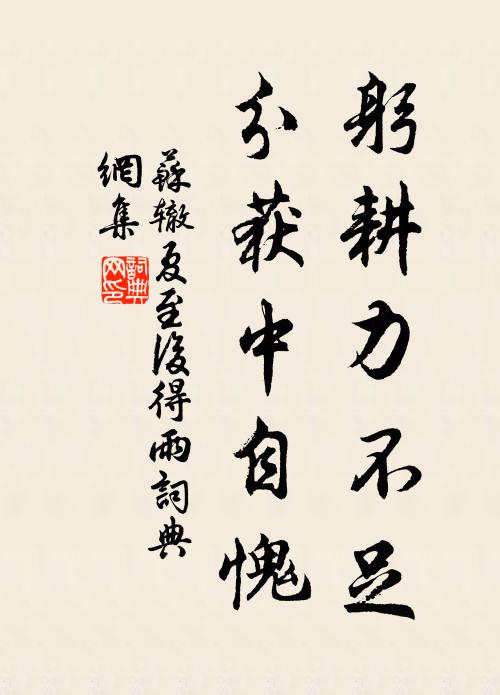 躬耕力不足
分获中自愧
蘇辙夏至後得雨詞典
網集
詞典網印